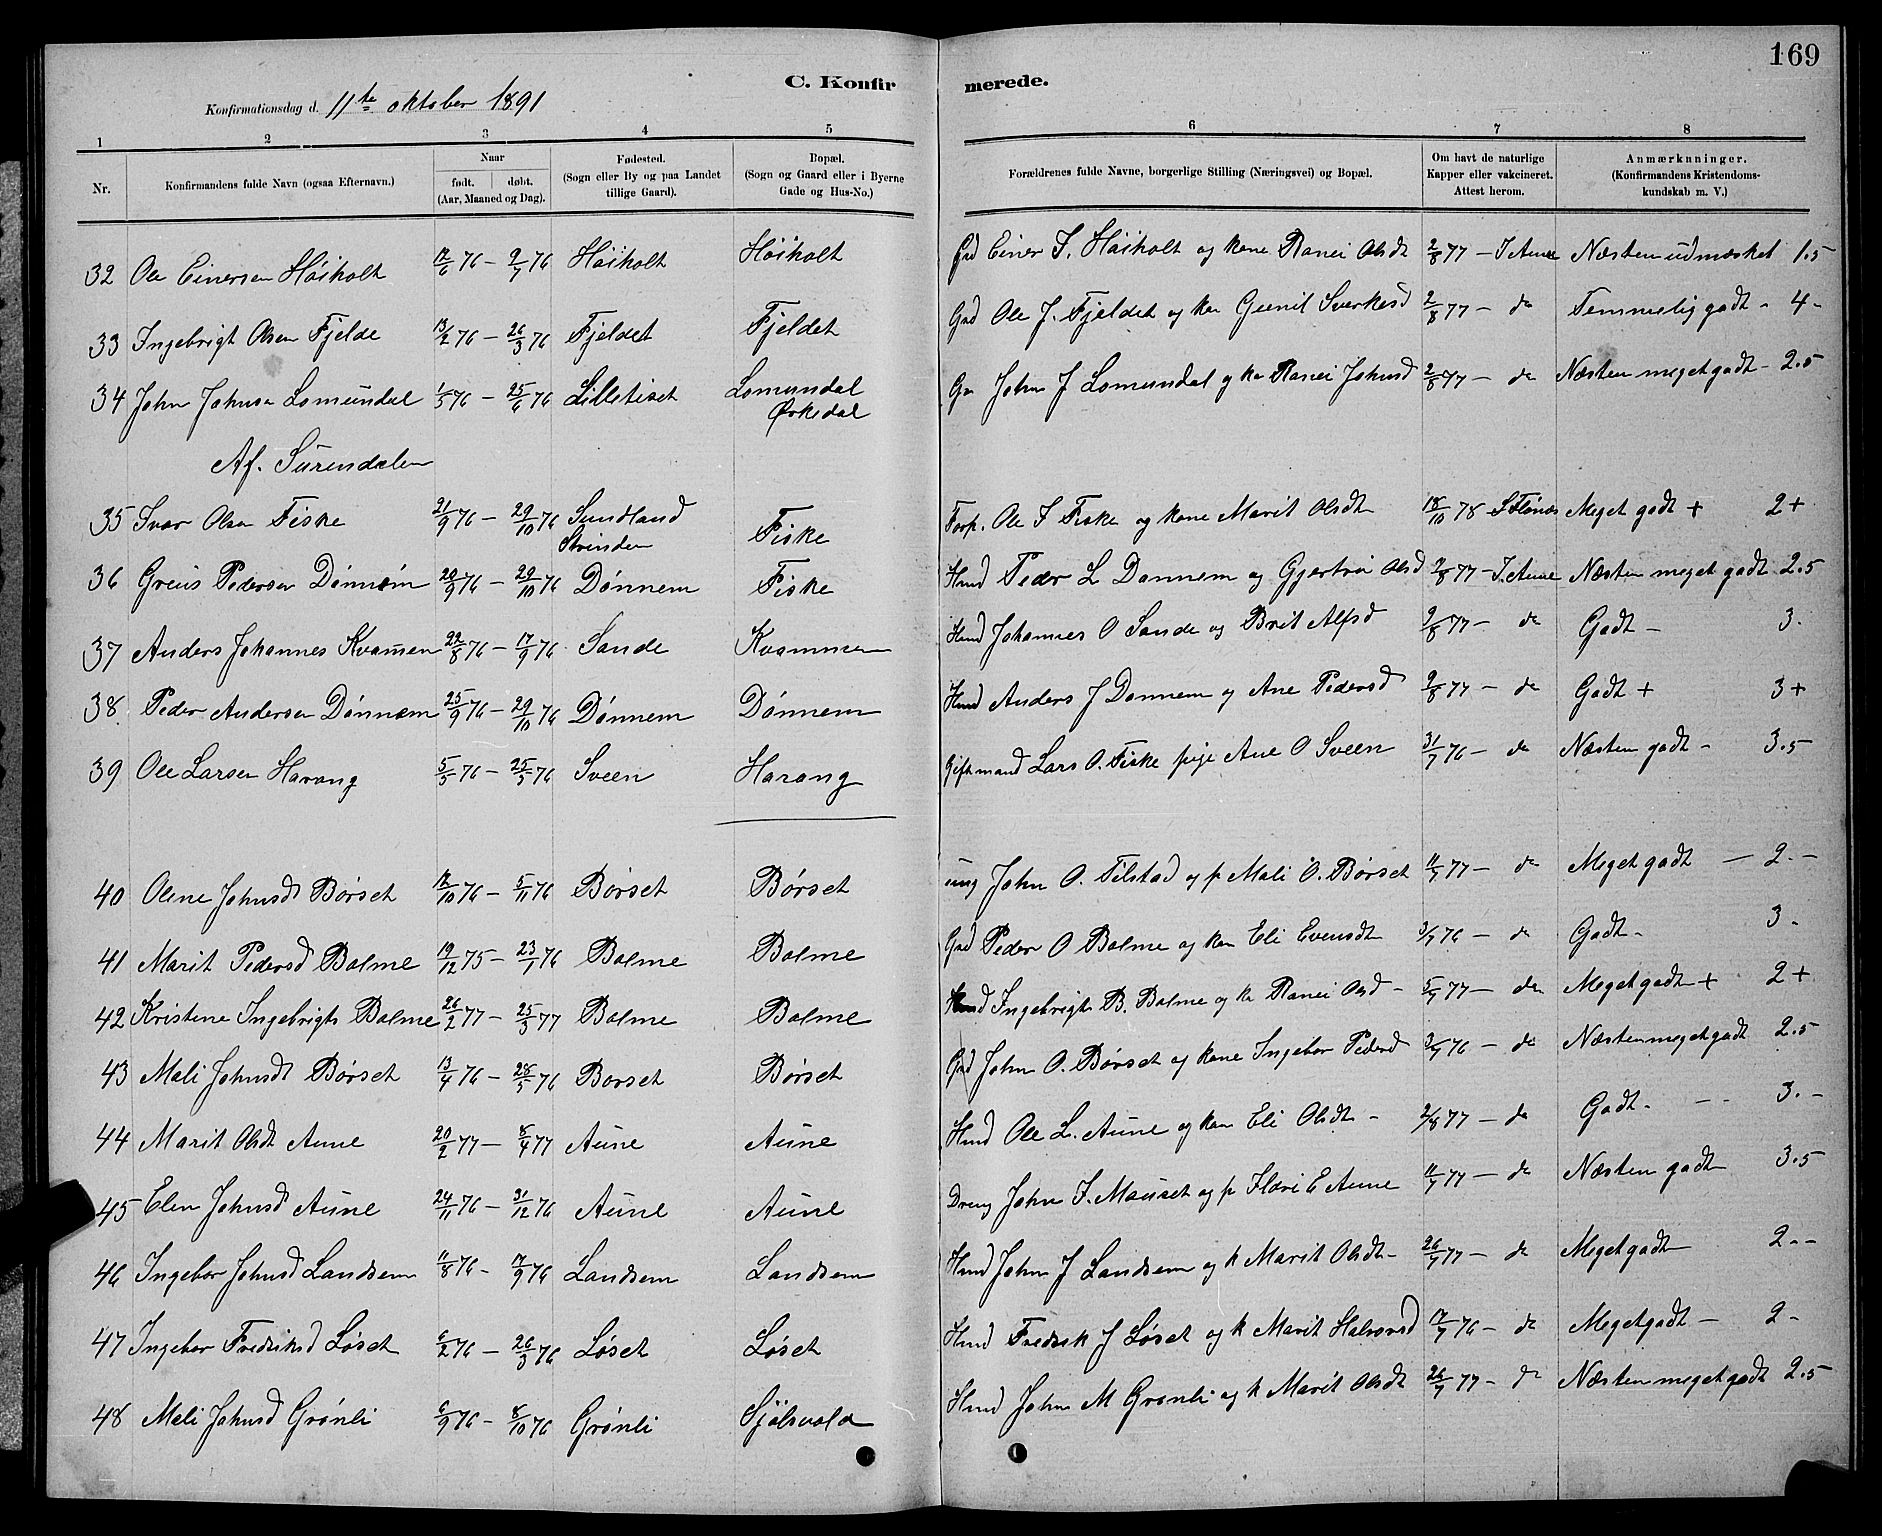 169
C. Konfirmerede.
Konfirmationsdag d. 11te oktober 1891
1 2 3 4 5 6 7 8
Nr. Konfirmandens fulde Navn (ogsaa Efternavn.) Naar født. døbt. (Aar, Maaned og Dag). Fødested. (Sogn eller By og paa Landet tillige Gaard). Bopæl. (Sogn og Gaard eller i Byerne Gade og Hus-No.) Forældrenes fulde Navne, borgerlige Stilling (Næringsvei) og Bopæl. Om havt de naturlige Kapper eller vakcineret. Attest herom. Anmærkninger. (Konfirmandens Kristendomskundskab m. V.)
32 Ole Einersen Höiholt 12/6 76 – 9/7 76 Höiholt Höiholt Grd Einer I. Höiholt og kone Ranei Olsdt 2/8 77 – I. Aune Næsten udmærket 1.5
33 Ingebrigt Olsen Fjelde 13/2 76 – 26/3 76 Fjeldet Fjeldet Grd Ole J. Fjeldet og ko Gunil Sverkesd 2/8 77 – do Temmelig godt – 4 –
34 John Johnsen Lomundal 1/5 76 – 25/6 76 Lilletiset Lomundal Ørkedal John J Lomundal og ko Ranei Johnsd 2/8 77 – do Næsten meget godt – 2.5
Af. Surendalen
35 Ivar Olsen Fiske 21/9 76 – 29/10 76 Sundland Strinden Fiske Forp. Ole I Fiske og kone Marit Olsdt 18/10 78 Meget godt + 2+
36 Pedersen Dönnem 20/9 76 – 29/10 76 Dönnem Fiske Hmd Peder L Dønnem og Gjertru Olsd 2/8 77 – I. Aune Næsten meget godt 2.5
37 Anders Johannes Kvammen 22/8 76 – 17/9 76 Sande Kvammen Hmd Johannes O Sande og Brit Alfsd 2/8 77 – do Godt – 3.
38. Peder Andersen Dönnem 25/9 76 – 29/10 76 Dönnem Dönnem Hmd Anders J Dønnem og Ane Pedersd 2/8 77 – do Godt + 3+
39 Ole Larsen Harang 5/5 76 – 25/5 76 Sveen Harang Giftmand Lars O. Fiske pige Ane O Sveen 31/7 76 – do Næsten godt – 3.5
40 Oline Johnsdt Börset 12/10 76 – 5/11 76 Börset Börset ung John O. Tilstad og p Mali O. Børset 11/7 77 – do Meget godt – 2. –
41 Marit Pedersd Bolme 19/12 75 – 23/1 76 Bolme Bolme Grd Peder O Bolme og ko Eli Evensdt 3/7 76 – do Godt – 3 –
42 Kristine Ingebrigts Bolme 26/2 77 – 25/3 77 Bolme Bolme Ingebrigt B. Bolme og ko Ranei Olsd – 5/7 77 – do Meget godt + 2+
43 Mali Johnsdt Börset 13/4 76 – 28/5 76 Børset Børset Grd John O. Børset og kone Ingebor Pedersd 3/7 76 – do Næsten meget godt 2.5
44 Marit Olsdt Aune 20/2 77 – 8/4 77 Aune Aune Hmd Ole L. Aune og ko Eli Olsdt – 2/8 77 – do Godt. – – 3. –
45 Elen Johnsd Aune 24/11 76 – 31/12 76 Aune Aune Dreng John I. Mauset og p E Aune 11/7 77 – do Næsten godt 3.5
46 Ingebor Johnsd Landsem 11/8 76 – 17/9 76 Landsem Landsem Hmd John J Landsem og k Marit Olsdt – 26/7 77 – do Meget godt 2 – –
47 Ingebor Fredriksd Løset 6/2 76 – 26/3 76 Løset Løset Hmd Fredrik J Løset og k Marit Halvorsd 17/7 76 – do Meget godt – 2 –
48 Mali Johnsd Grönli 6/9 76 – 8/10 76 Grönli Sjölsvold Hmd John M Grønli og k Marit Olsdt 26/7 77 – do Næsten meget godt 2.5